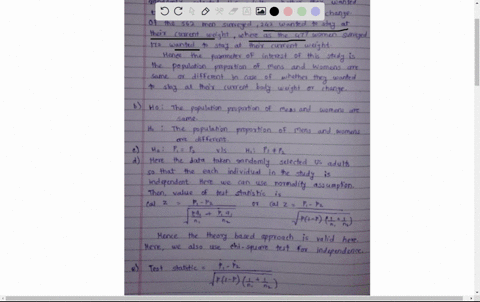 they wanted
change.
Of the 562 men surveyed, 242 wanted to stay at
their current weight, where as the women surveyed
wanted to stay at their current weight.
Hence the parameter of interest of this study is
the population proportion of mens and womens are
same or different in case of whether they wanted
to stay at their current body weight or change.
b) H0: The population proportion of mens and womens are
same.
H1: The population proportion of mens and womens
are different
c) H0: P1 = P2 v/s H1: P1 ≠ P2
d) Here the data taken randomly selected US adults
so that the each individual in the study is
independent. Here we can use normality assumption.
Then value of test statistic is
cal Z = P1-P2 / √(p1q1/n1 + p2q2/n2) or cal Z = P1-P2 / √(P(1-P)(1/n1 + 1/n2))
Hence the theory based approach is valid here
Here, we also use chi-square test for independence.
e) Test statistic = P1-P2 / √(P(1-P)(1/n1 + 1/n2))